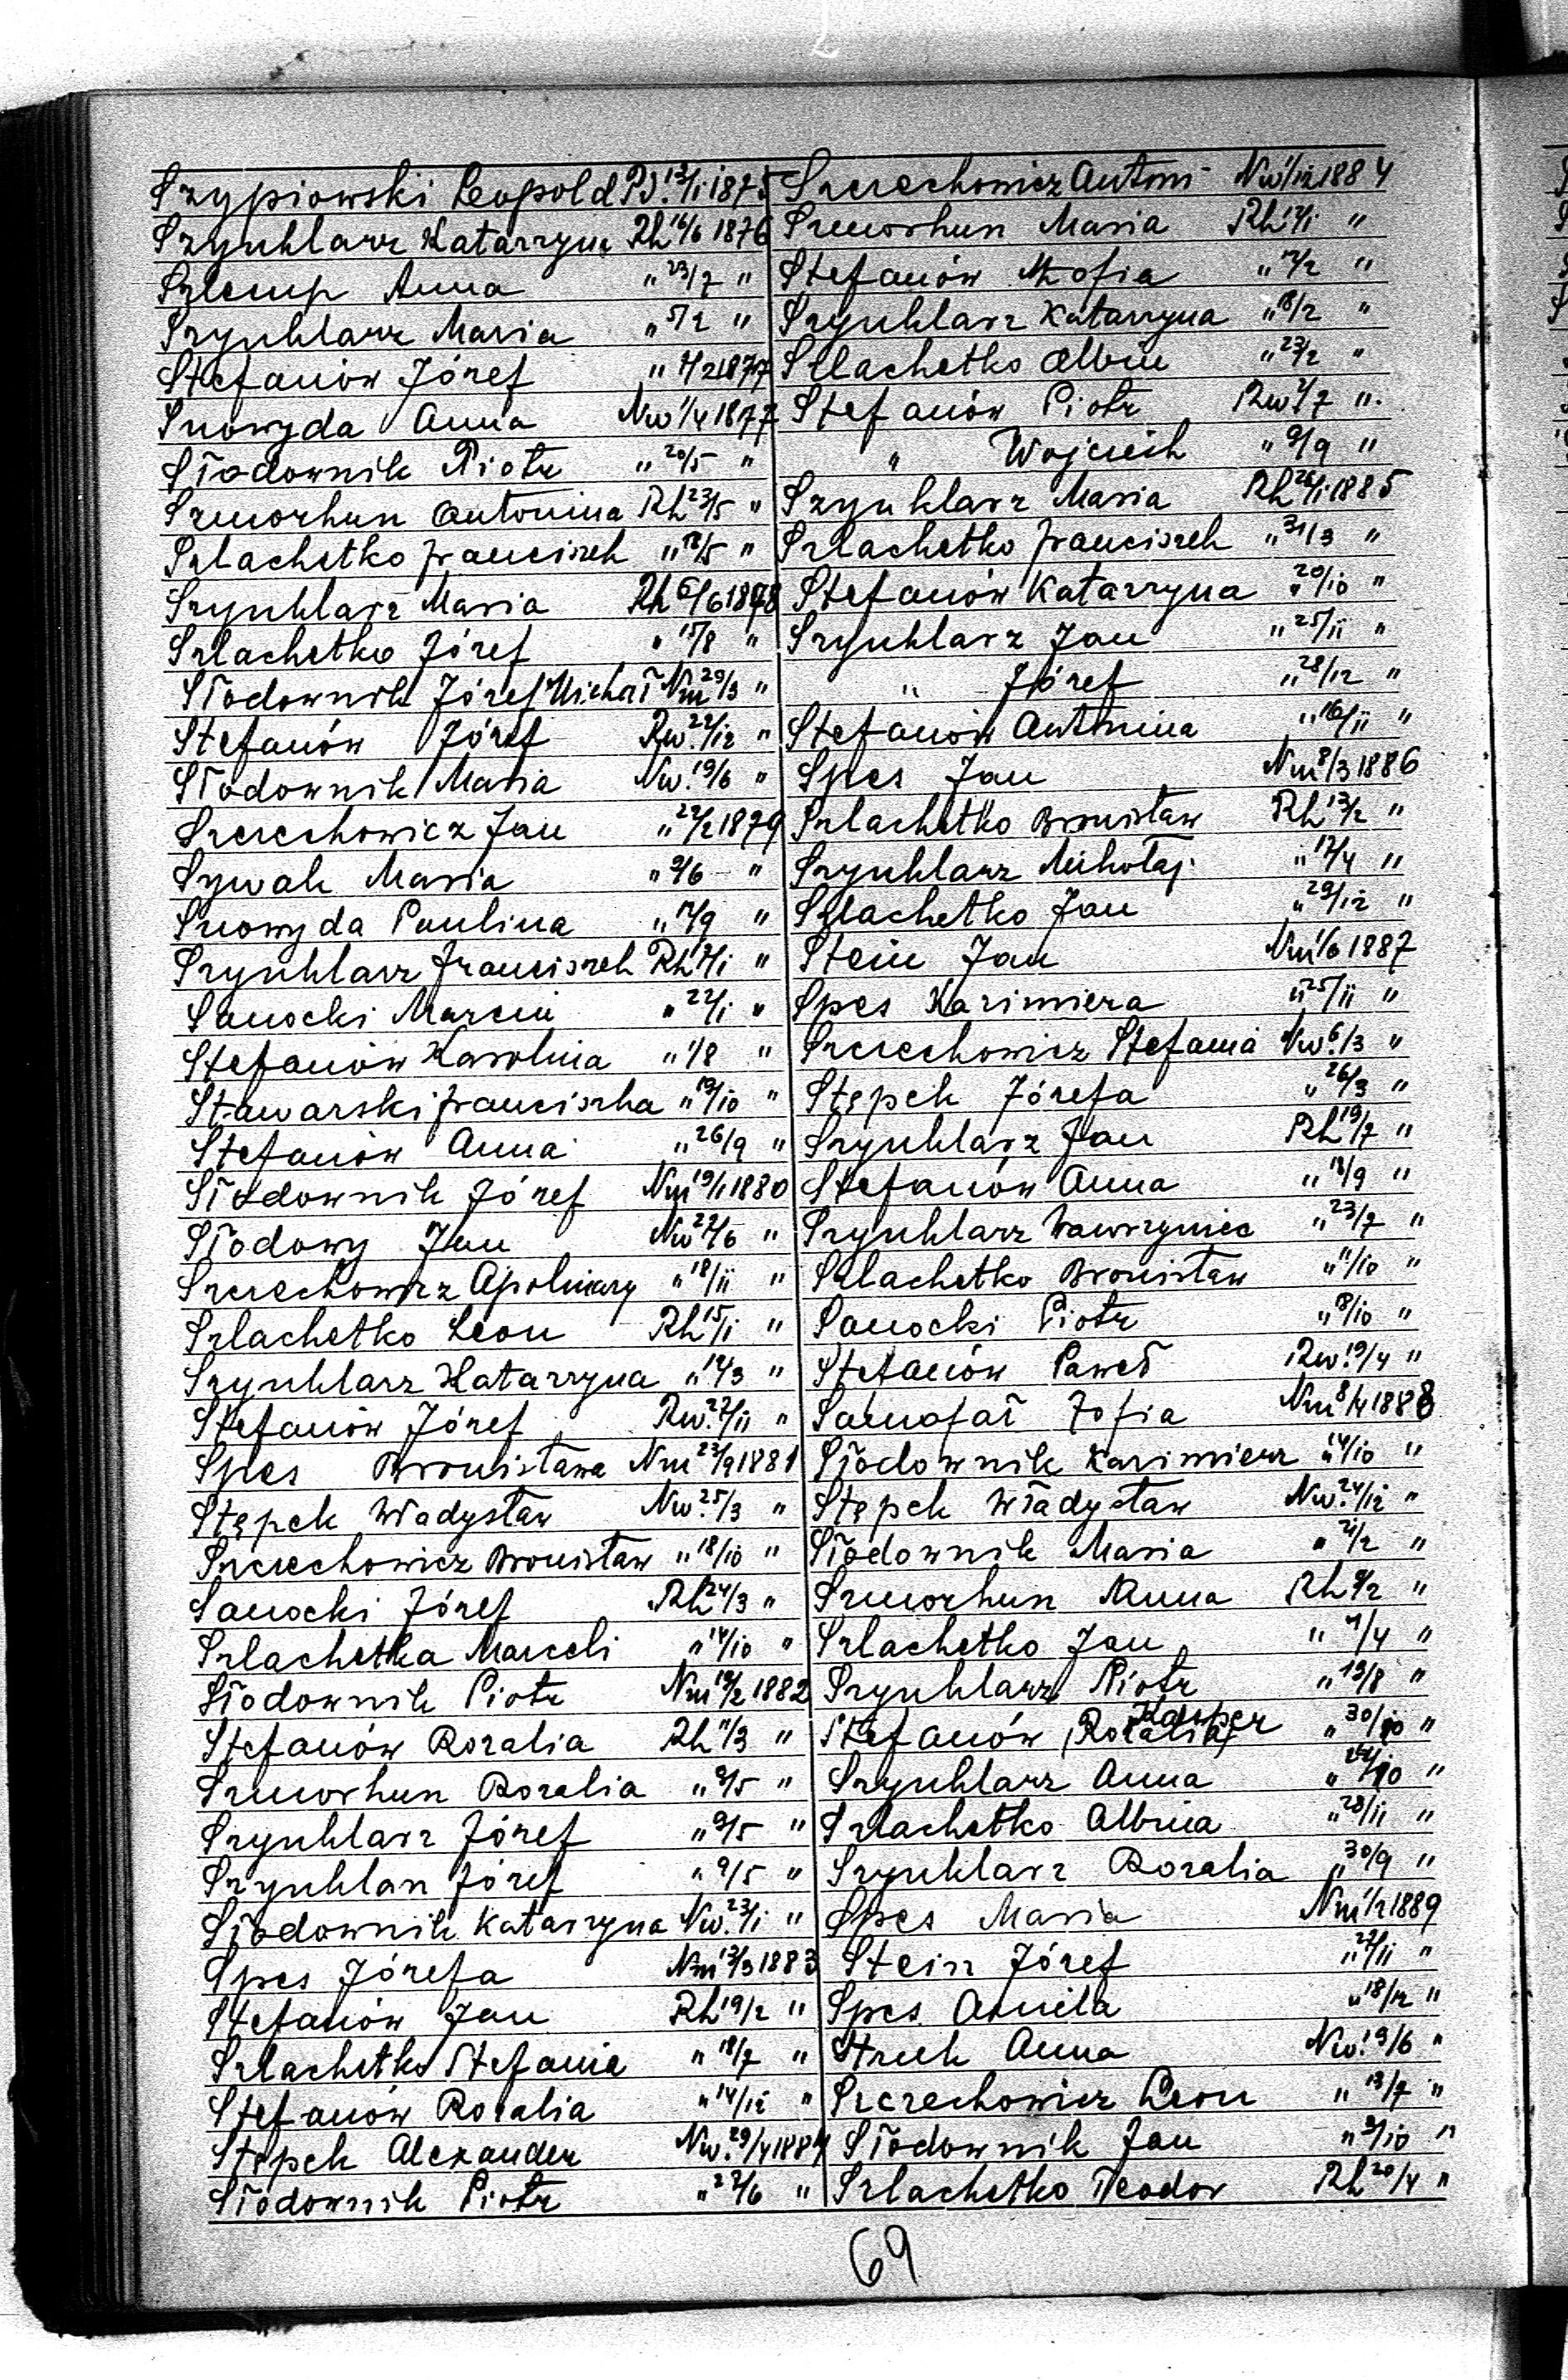 Szypiowski Leopold PJ. 13/1 1875
Szynhlarz Katarzyna Rh 16/6 1876
Szlemp Anna " 23/7 "
Szynhlarz Maria " 5/2 "
Stefanów Józef " 4/2 1877
Snowyda Anna Nw 1/4 1877
Słodownik Piotr " 20/5 "
Szmorhun Antonina Rh 23/5 "
Szlachetko Franciszek " 18/5 "
Szynhlarz Maria Rh 6/6 1878
Szlachetko Józef " 15/8 "
Słodownik Józef Michał Nm 29/3 "
Stefanów Józef Rw. 22/12 "
Słodownik Maria Nw. 19/6 "
Szczechowicz Jan " 22/2 1879
Sywak Maria " 9/6 "
Snowyda Paulina " 17/9 "
Szynhlarz Franciszek Rh "
Sanocki Marcin " 22/1 "
Stefanów Karolina " 1/8 "
Stawarski Franciszka " 19/10 "
Stefanów Anna " 26/9 "
Słodownik Józef Nm 19/1 1880
Słodowy Jan Nw 22/6 "
Szczechowicz Apolinary " 18/11 "
Szlachetko Leon Rh 15/1 "
Szynhlarz Katarzyna " 14/3 "
Stefanów Józef Rw. 27/11 "
Spes Bronisława Nm 23/9 1881
Stępek Władysław Nw. 25/3 "
Szczechowicz Bronisław " 18/10 "
Sanocki Józef Rh 24/3 "
Szlachetka Marceli " 14/10 "
Słodownik Piotr Nm 19/2 1882
Stefanów Rozalia Rh 11/3 "
Szmorhun Rozalia " 9/5 "
Szynhlarz Józef " 9/5 "
Szynhlan Józef " 9/5 "
Słodownik Katarzyna Nw. 23/1 "
Spes Józefa Nm 13/3 1883
Stefanów Jan Rh 19/2 "
Szlachetko Stefania " 18/7 "
Stefanów Rozalia " 14/12 "
Stępek Alexander Nw. 29/4 1884
Słodownik Piotr " 22/6 "
Szczechowicz Antoni Nw 1/12 1884
Szmorhun Maria Rh 17/1 "
Stefanów Zofia " 12/2 "
Szynhlarz Katarzyna " 18/2 "
Szlachetko Albin " 23/2 "
Stefanów Piotr Rw 7 "
" Wojciech " 9/9 "
Szynhlarz Maria Rh 26/1 1885
Szlachetko Franciszek " 31/3 "
Stefanów Katarzyna " 20/10 "
Szynhlarz Jan " 25/11 "
" Józef " 28/12 "
Stefanów Antonina " 16/11 "
Spes Jan Nm 8/3 1886
Szlachetko Bronisław Rh 13/2 "
Szynhlarz Mikołaj " 17/4 "
Szlachetko Jan " 29/12 "
Stein Jan Nm 1/6 1887
Spes Kazimiera " 25/11 "
Szczechowicz Stefania Nw. 6/3 "
Stępek Józefa " 26/3 "
Szynhlarz Jan Rh 19/7 "
Stefanów Anna " 18/9 "
Szynhlarz Wawrzyniec " 23/7 "
Szlachetko Bronisław " 11/10 "
Sanocki Piotr " 18/10 "
Stefanów Paweł Rw. 19/4 "
Samofał Zofia Nm 8/4 1888
Słodownik Kazimierz " 14/10 "
Stępek Władysław Nw. 24/12 "
Słodownik Maria " 21/2 "
Szmorhun Anna Rh 9/2 "
Szlachetko Jan " 4 "
Szynhlarz Piotr " 19/8 "
Stefanów (Rozalia) Kasper " 30/10 "
Szynhlarz Anna " 10 "
Szlachetko Albina " 28/11 "
Szynhlarz Rozalia " 30/9 "
Spes Maria Nm 1/2 1889
Stein Józef " 27/11 "
Spes Aniela " 18/12 "
Struk Anna Nw. 19/6 "
Szczechowicz Leon " 13/7 "
Słodownik Jan " 9/10 "
Szlachetko Teodor Rh 20/4 "
69